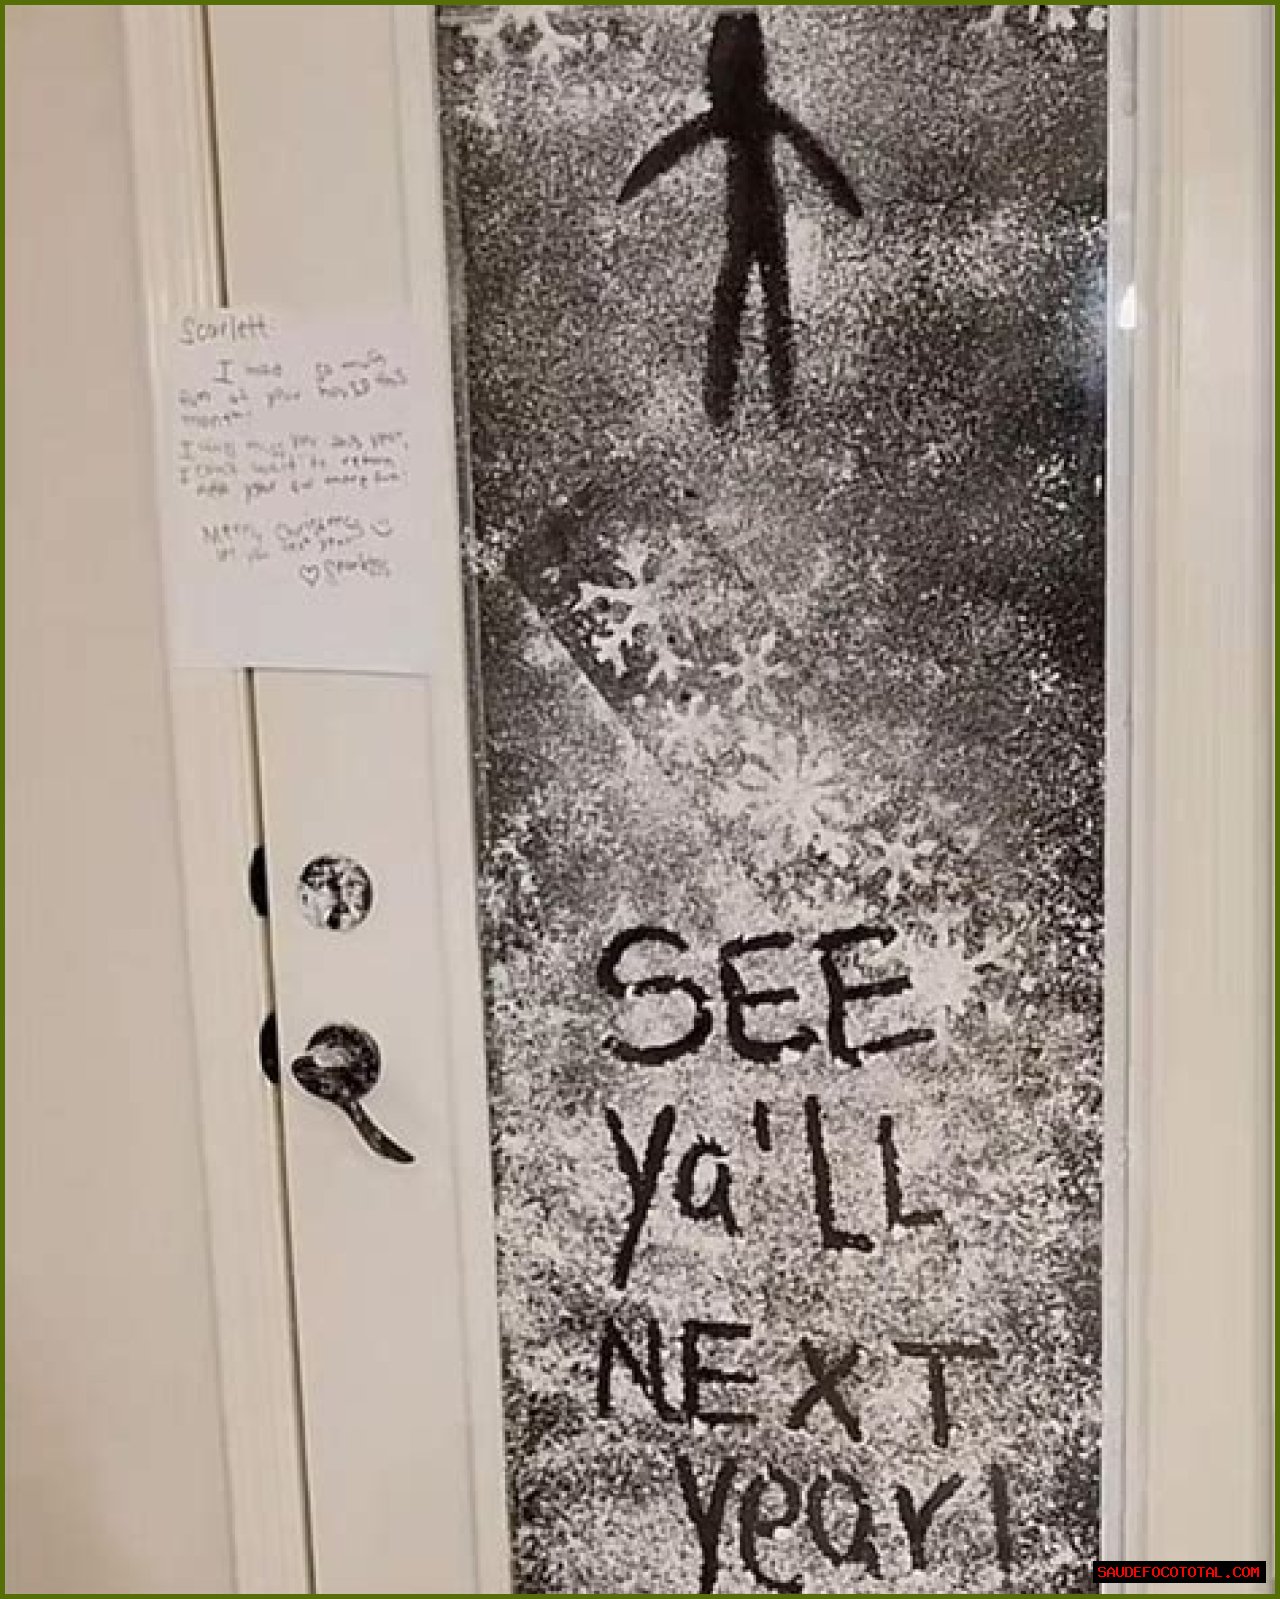 Scarlett
I had so much
fun at your house this
month!
I will miss you this year,
I can't wait to return
next year for more fun!
Merry Christmas
see you next year
Sparkles
SEE
Ya'LL
NEXT
year!
SAUDEFOCOTOTAL.COM